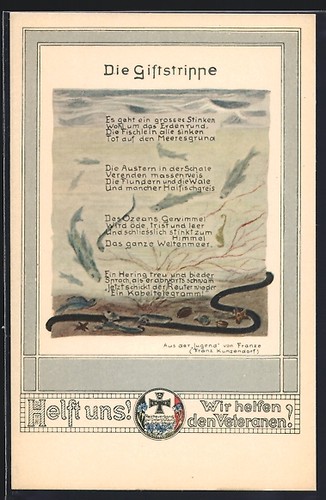 Die Giftstrippe
Es geht ein grosses Stinken
Wohl um das Erdenrund,
Die Fischlein alle sinken
Tot auf den Meeresgrund
Die Austern in der Schale
Verenden massenweis
Die Flundern und die Wale
Und mancher Haifischgreis
Des Ozeans Gewimmel
Wird öde, trist und leer
Und schliesslich stinkt zum
Himmel
Das ganze Weltenmeer.
Ein Hering treu und bieder
Sprach, als er abwärts schwamm
"Jetzt schickt der Reuter wieder
Ein Kabeltelegramm!"
Aus der "Jugend" von Franze
(Franz Kunzendorf)
Helft uns!
Wir helfen
den Veteranen!